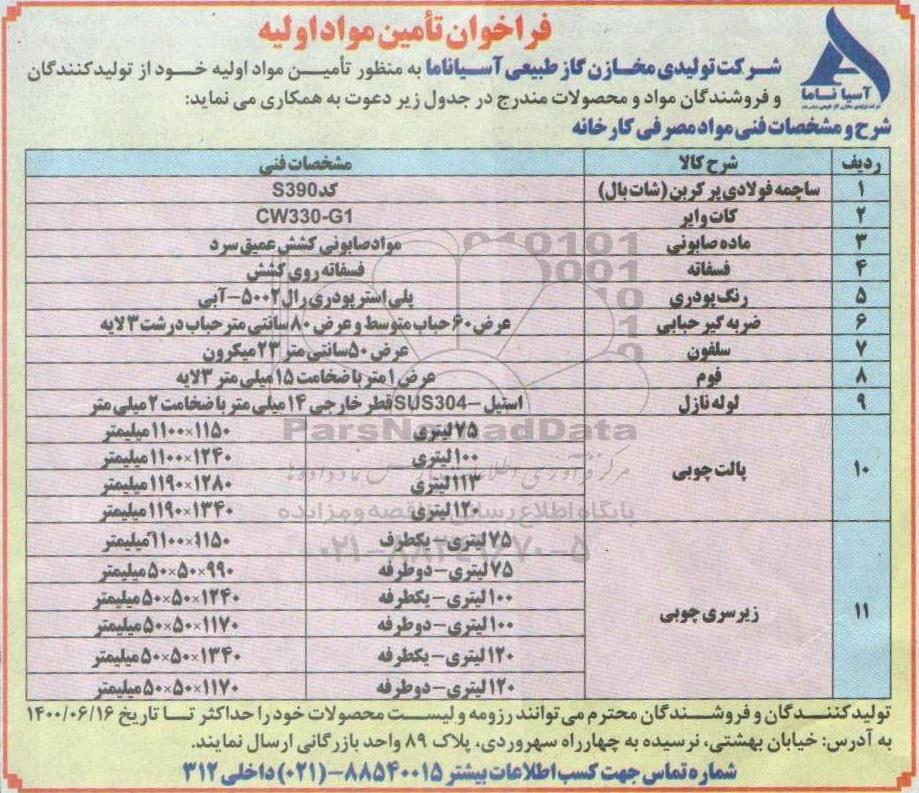 فراخوان تأمین مواد اولیه
آسیا ناما
شرکت تولیدی مخازن گاز طبیعی آسیاناما به منظور تأمین مواد اولیه خود از تولیدکنندگان
و فروشندگان مواد و محصولات مندرج در جدول زیر دعوت به همکاری می نماید:
شرح و مشخصات فنی مواد مصرفی کارخانه
ردیف شرح کالا مشخصات فنی
۱ ساچمه فولادی پر کربن (شات بال) کد S390
۲ کات وایر CW330-G1
۳ ماده صابونی مواد صابونی کشش عمیق سرد
۴ فسفاته فسفاته روی کشش
۵ رنگ پودری پلی استر پودری رال ۵۰۰۲-آبی
۶ ضربه گیر حبابی عرض ۶۰ حباب متوسط و عرض ۸۰ سانتی متر حباب درشت ۳ لایه
۷ سلفون عرض ۵۰ سانتی متر ۲۳ میکرون
۸ فوم عرض ۱ متر با ضخامت ۱۵ میلی متر ۳ لایه
۹ لوله نازل استیل -SUS304 قطر خارجی ۱۴ میلی متر با ضخامت ۲ میلی متر
۱۰ پالت چوبی ۷۵ لیتری ۱۱۵۰×۱۱۰۰ میلیمتر
۱۰۰ لیتری ۱۲۴۰×۱۱۰۰ میلیمتر
۱۱۳ لیتری ۱۲۸۰×۱۱۹۰ میلیمتر
۱۲۰ لیتری ۱۳۴۰×۱۱۹۰ میلیمتر
۱۱ زیرسری چوبی ۷۵ لیتری - یکطرف ۱۱۵۰×۱۱۰۰ میلیمتر
۷۵ لیتری - دوطرفه ۹۹۰×۵۰×۵۰ میلیمتر
۱۰۰ لیتری - یکطرفه ۱۲۴۰×۵۰×۵۰ میلیمتر
۱۰۰ لیتری - دوطرفه ۱۱۷۰×۵۰×۵۰ میلیمتر
۱۲۰ لیتری - یکطرفه ۱۳۴۰×۵۰×۵۰ میلیمتر
۱۲۰ لیتری - دوطرفه ۱۱۷۰×۵۰×۵۰ میلیمتر
ParsNamadData
پایگاه اطلاع رسانی مناقصه و مزایده
تولیدکنندگان و فروشندگان محترم می توانند رزومه و لیست محصولات خود را حداکثر تا تاریخ ۱۴۰۰/۰۶/۱۶
به آدرس: خیابان بهشتی، نرسیده به چهارراه سهروردی، پلاک ۸۹ واحد بازرگانی ارسال نمایند.
شماره تماس جهت کسب اطلاعات بیشتر ۸۸۵۴۰۰۱۵-(۰۲۱) داخلی ۳۱۲